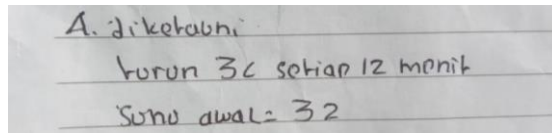 A. diketauhi
turun 3c setiap 12 menit
Suhu awal = 32